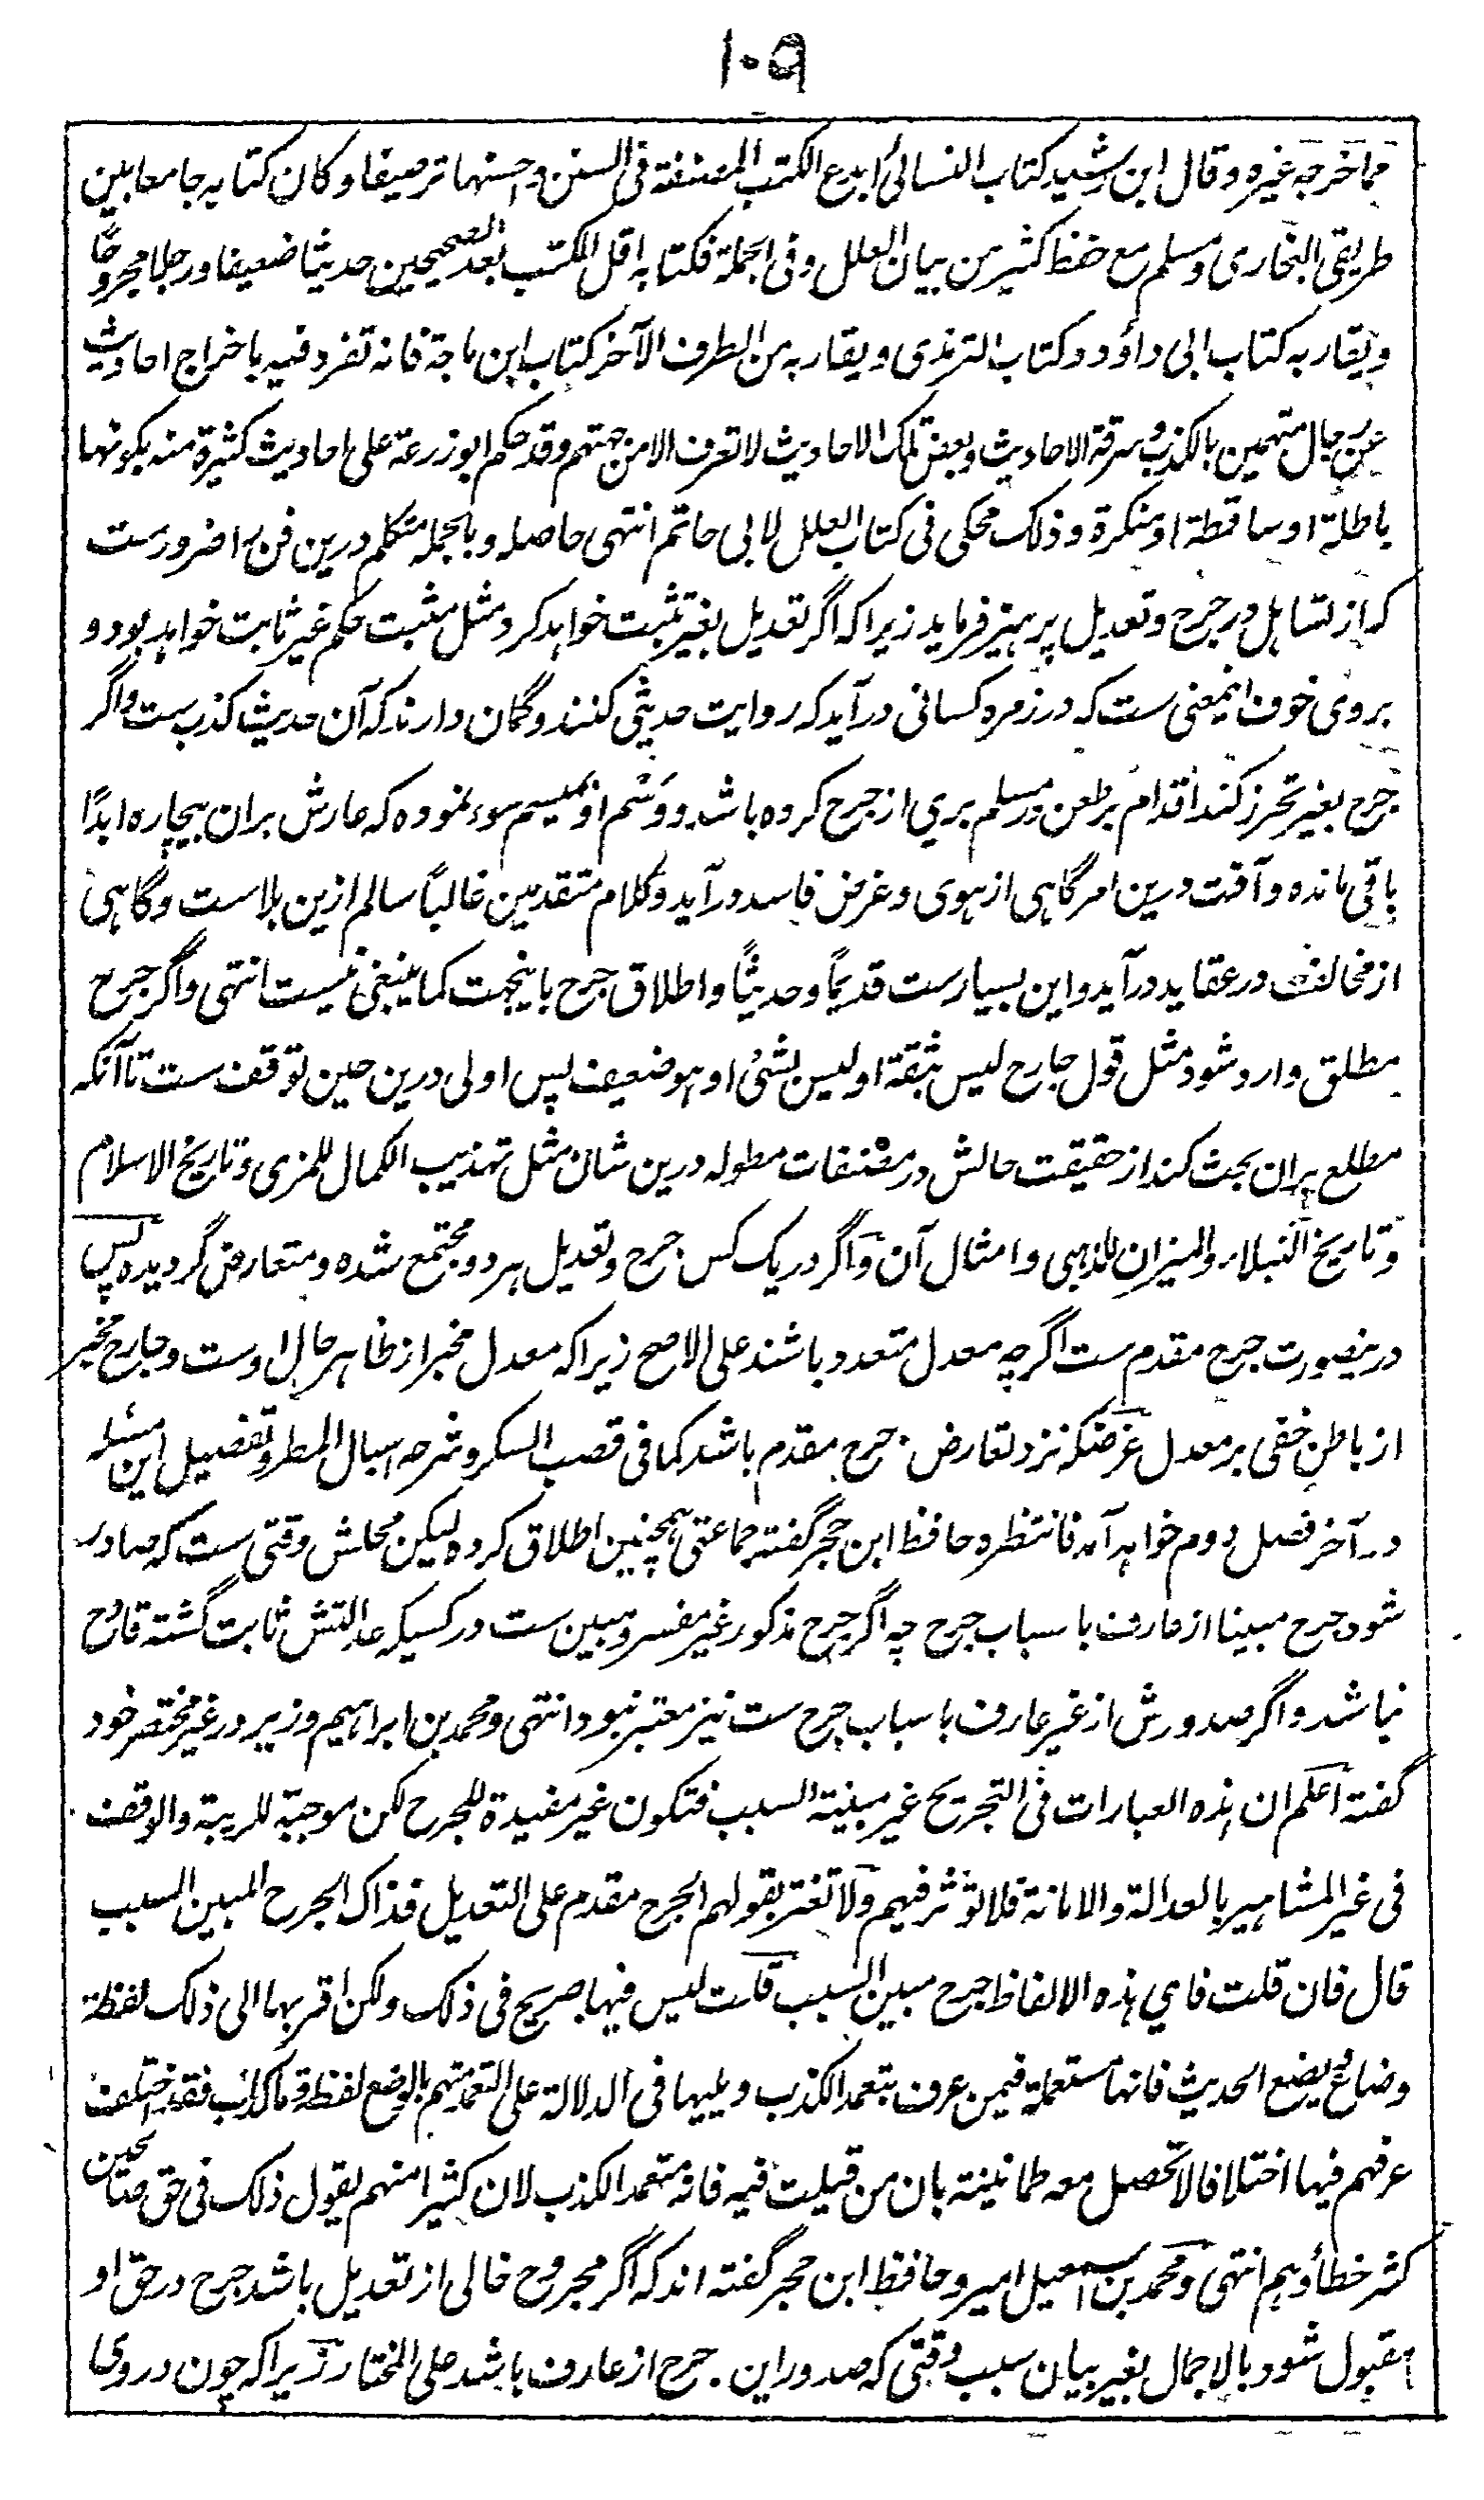 ۱۰۹
مما خرجه غیره وقال ابن رشید کتاب النسائی ابدع الکتب المصنفة فی السنن و احسنها ترصیفا وکان کتابه جامعا بین
طریقی البخاری و مسلم مع حظ کثیر من بیان العلل وفی الجملة فکتابه اقل الکتب بعد الصحیحین حدیثا ضعیفا ورجلا مجروحًا
ویقاربه کتاب ابی داؤد وکتاب الترمذی ویقاربه من الطرف الآخر کتاب ابن ماجة فانه تفرد فیه باخراج احادیث
عن رجال متهمین بالکذب وسرقة الاحادیث وبعض تلک الاحادیث لا تعرف الا من جهتهم وقد حکم ابو زرعة علی احادیث کثیرة منه بکونها
باطلة او ساقطة او منکرة وذلک محکی فی کتاب العلل لابی حاتم انتهی حاصله و بالجمله متکلم درین فن را ضرورست
که از تساهل در جرح وتعدیل پرهیز فرماید زیرا که اگر تعدیل بغیر تثبت خواهد کرد مثل مثبت حکم غیر ثابت خواهد بود و
بروی خوف اینمعنی ست که در زمره کسانی درآید که روایت حدیثی کنند وگمان دارند که آن حدیث کذب ست واگر
جرح بغیر تحرز کند اقدام بر طعن در مسلم بری از جرح کرده باشد ووَسْم او بمیسم سوء نموده که عارش بران بیچاره ابدًا
باقی مانده وآفت درین امر گاهی از هوی و غرض فاسد درآید وکلام متقدمین غالباً سالم ازین بلاست وگاهی
از مخالفت در عقاید درآید واین بسیارست قدیمًا وحدیثًا واطلاق جرح باینجهت کما ینبغی نیست انتهی واگر جرح
مطلق وارد شود مثل قول جارح لیس بثقة او لیس بشئ او هو ضعیف پس اولی درین حین توقف ست تا آنکه
مطلع بران بحث کند از حقیقت حالش در مصنفات مطوله درین شان مثل تهذیب الکمال للمزی وتاریخ الاسلام
وتاریخ النبلاء والمیزان للذهبی وامثال آن واگر در یک کس جرح وتعدیل هر دو مجتمع شده ومتعارض گردیده پس
درینصورت جرح مقدم ست اگرچه معدل متعدد باشند علی الاصح زیرا که معدل مخبر از ظاهر حال اوست وجارح مخبر
از باطن خفی بر معدل غرضکه نزد تعارض جرح مقدم باشد کما فی قصب السکر وشرحه اسبال المطر وتفصیل این مسئله
در آخر فصل دوم خواهد آمد فانتظره وحافظ ابن حجر گفته جماعتی همچنین اطلاق کرده لیکن محلش وقتی ست که صادر
شود جرح مبینا از عارف با سباب جرح چه اگر جرح مذکور غیر مفسر ومبین ست در کسیکه عدالتش ثابت گشته قادح
نباشد واگر صدورش از غیر عارف باسباب جرح ست نیز معتبر نبود انتهی ومحمد بن ابراهیم وزیر در غیر مختصر خود
گفته اعلم ان هذه العبارات فی التجریح غیر مبنیة السبب فتکون غیر مفیدة للجرح لکن موجبة للریبة والوقف
فی غیر المشاهیر بالعدالة والامانة فلا تؤثر فیهم ولا تغتر بقولهم الجرح مقدم علی التعدیل فذاک الجرح المبین السبب
قال فان قلت فای هذه الالفاظ جرح مبین السبب قلت لیس فیها صریح فی ذلک ولکن اقربها الی ذلک لفظة
وضاع ویضع الحدیث فانها مستعملة فیمن عرف بتعمد الکذب ویلیها فی الدلالة علی التعمد متهم بالوضع لفظة ماکذاب فقد اختلف
عرفهم فیها اختلافا لا تحصل معه طمانینة بان من قیلت فیه فانه متعمد الکذب لان کثیرا منهم یقول ذلک فی حق صالحین
کثر خطأوهم انتهی ومحمد بن اسمعیل امیر وحافظ ابن حجر گفته اند که اگر مجروح خالی از تعدیل باشد جرح در حق او
مقبول شود بالاجمال بغیر بیان سبب وقتی که صدور این جرح از عارف باشد علی المختار زیرا که چون در وی